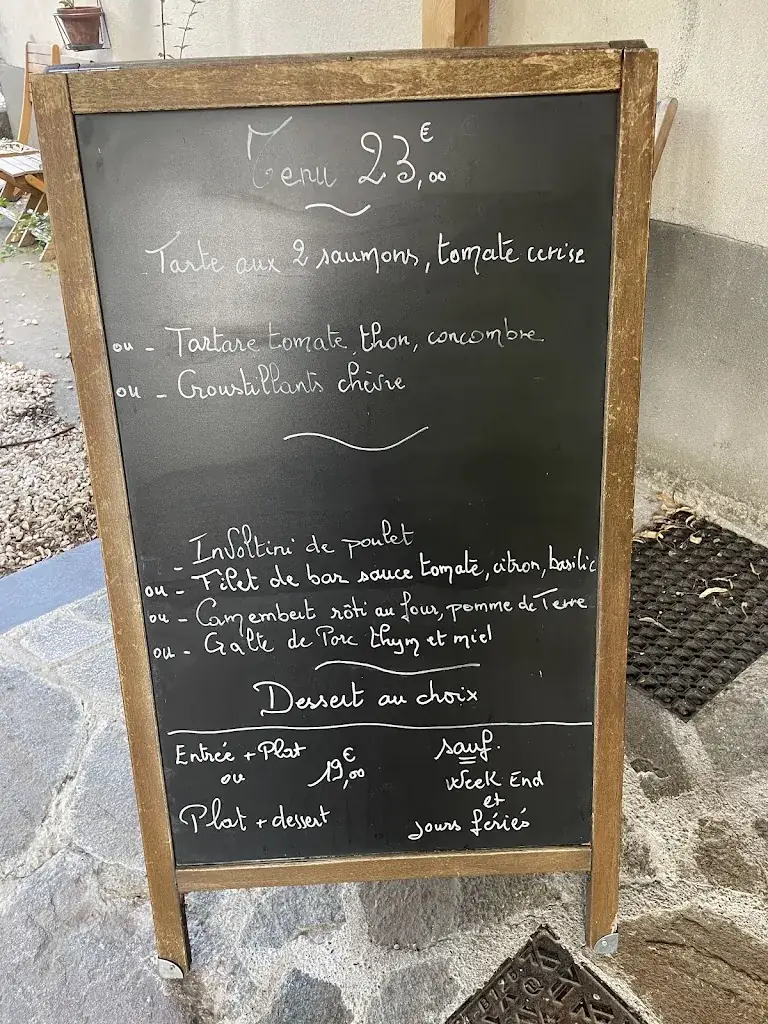 Menu 23,00€
Tarte aux 2 saumons, tomate cerise
ou - Tartare tomate, thon, concombre
ou - Croustillants chèvre
- Involtini de poulet
ou - Filet de bar sauce tomate, citron, basilic
ou - Camembert rôti au four, pomme de Terre
ou - Galte de Porc thym et miel
Dessert au choix
Entrée + Plat
ou 19,00€
Plat + dessert
sauf.
Week End
et
jours fériés